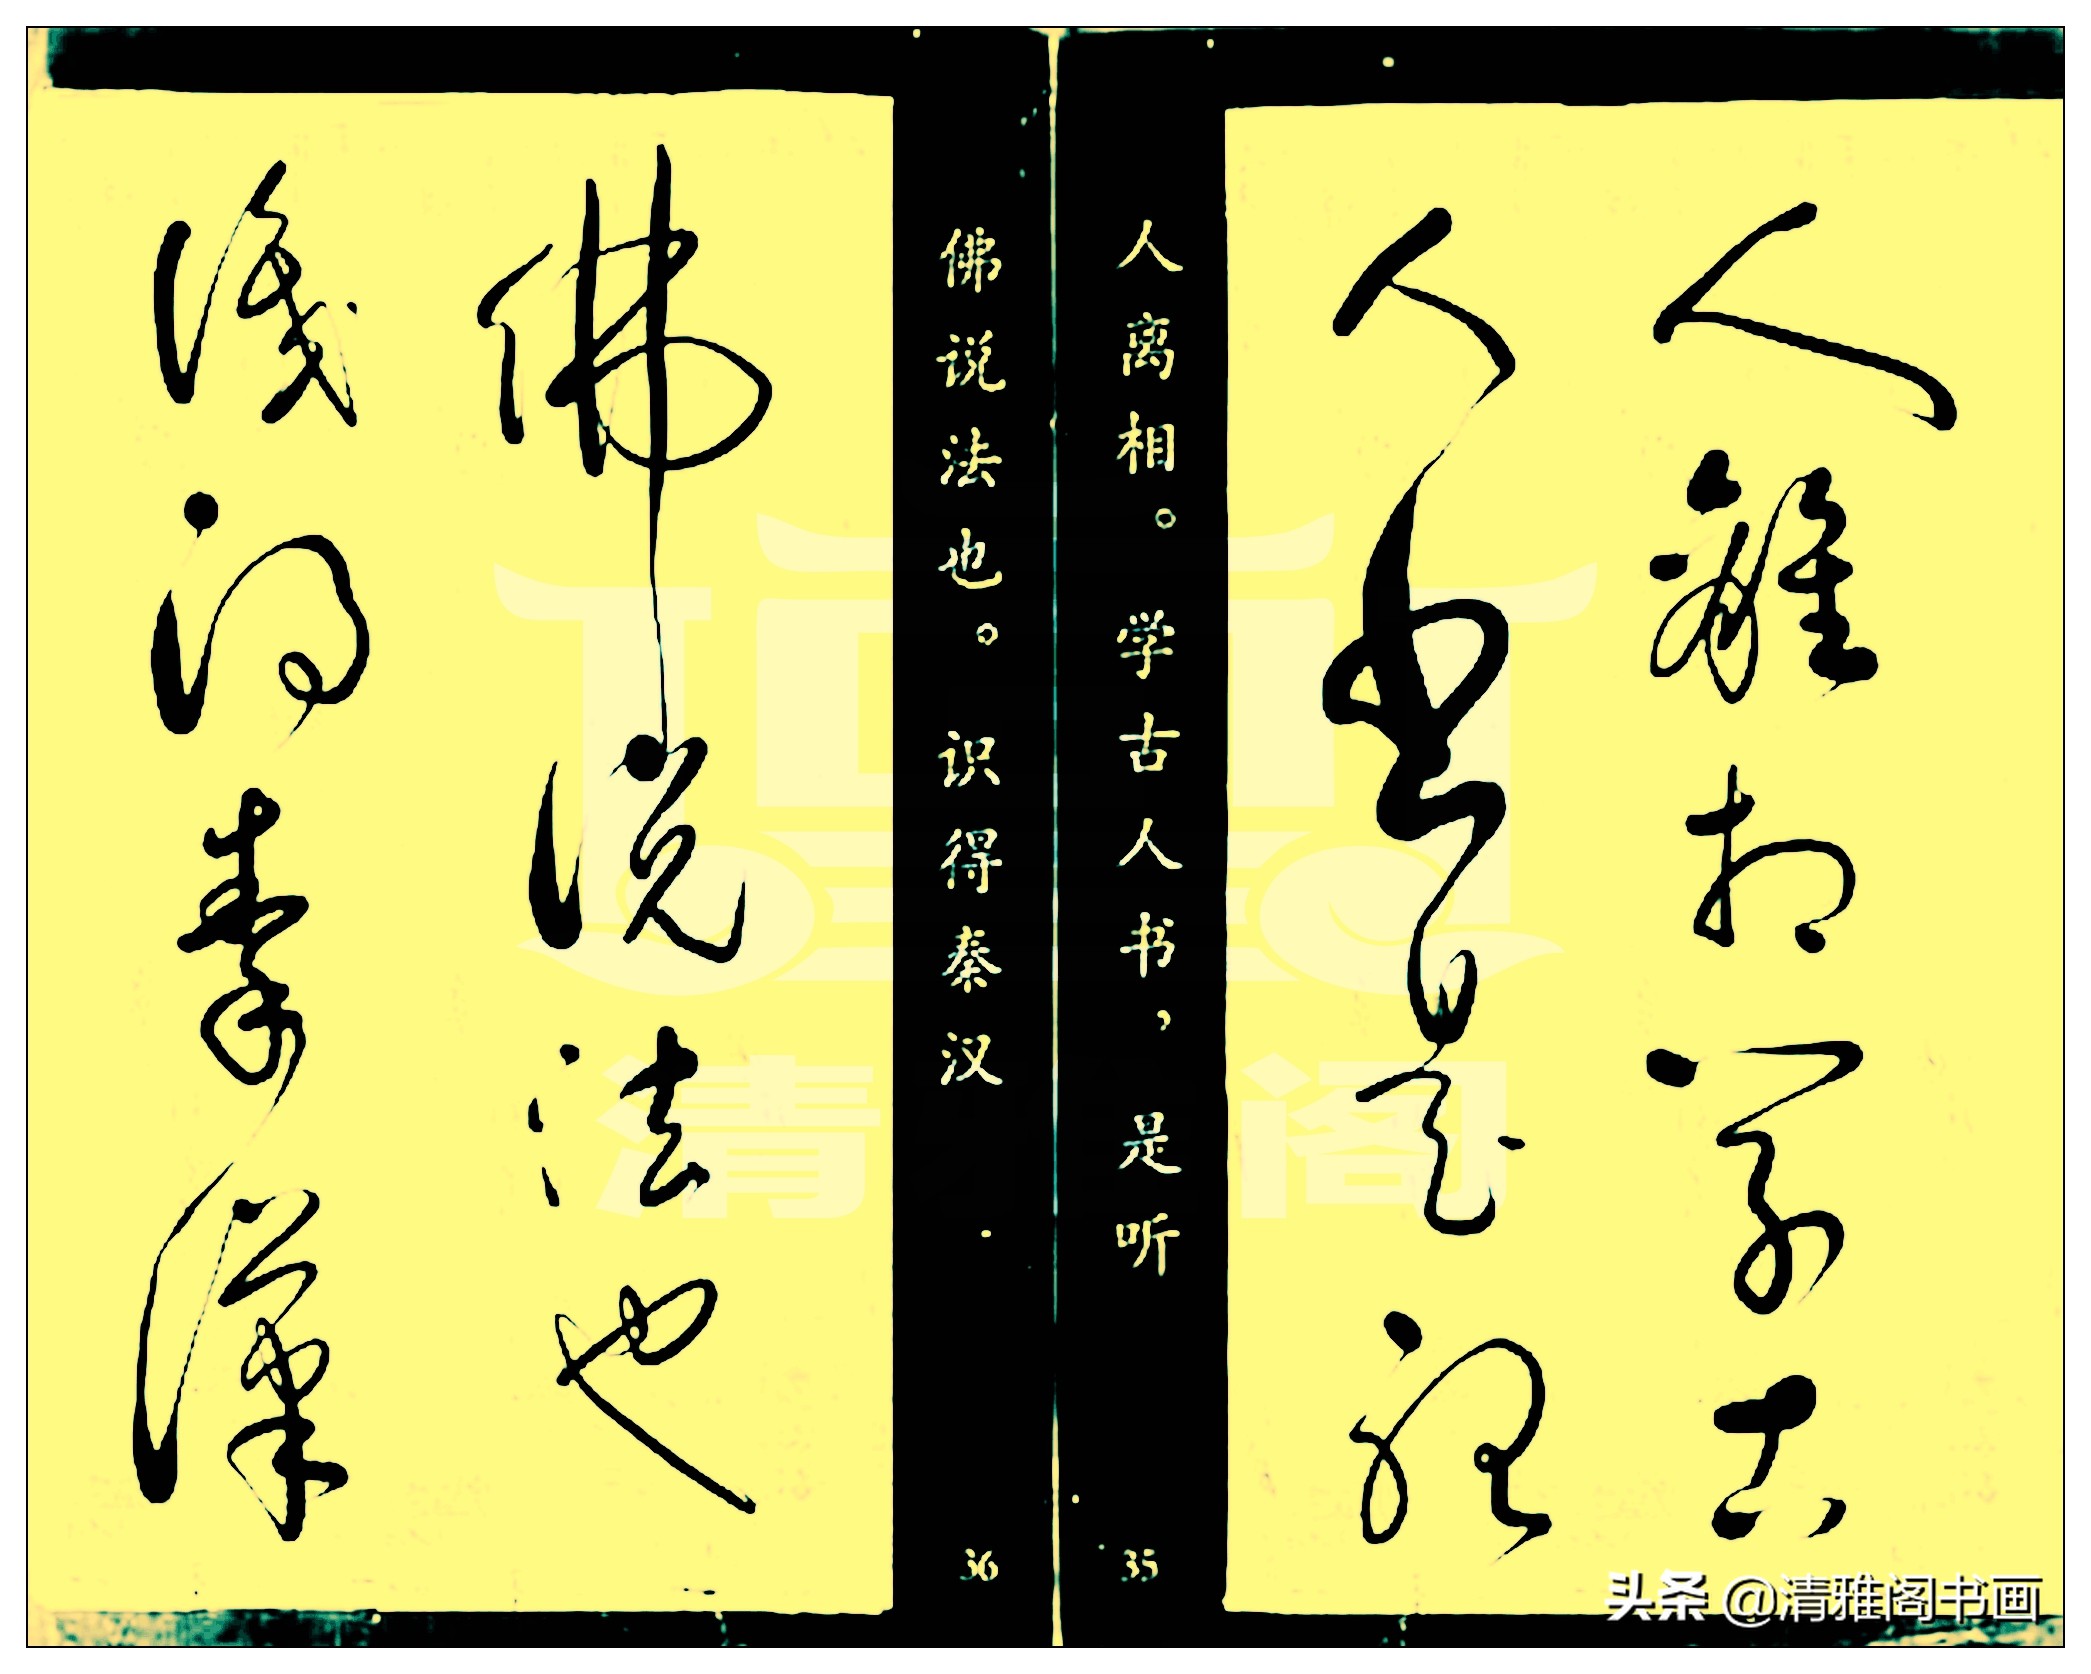 人離相學古
人書是聽
人离相。学古人书，是听
35
佛说法也。识得秦汉
36
佛說法也
識得秦漢
清 阁
头条 @清雅阁书画